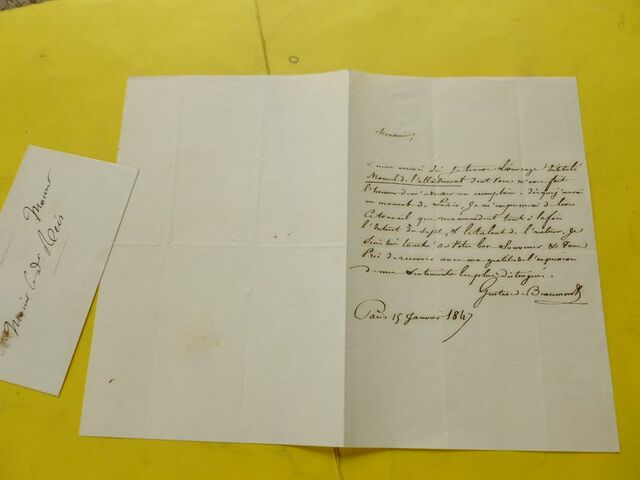 Monsieur,
à mon arrivée ici je trouve l'ouvrage intitulé
Manuel de l'allaitement dont vous m'avez fait
l'honneur de m'adresser un exemplaire. Dès que j'aurai
un moment de loisir, je m'empresserai de lire
ce travail que recommandent tout à la fois
l'intérêt du sujet, & le talent de l'auteur. Je
suis très touché de votre bon souvenir & vous
prie de recevoir avec ma gratitude l'expression
de mes sentiments les plus distingués.
Gustave de Beaumont
Paris 15 Janvier 1847
Monsieur